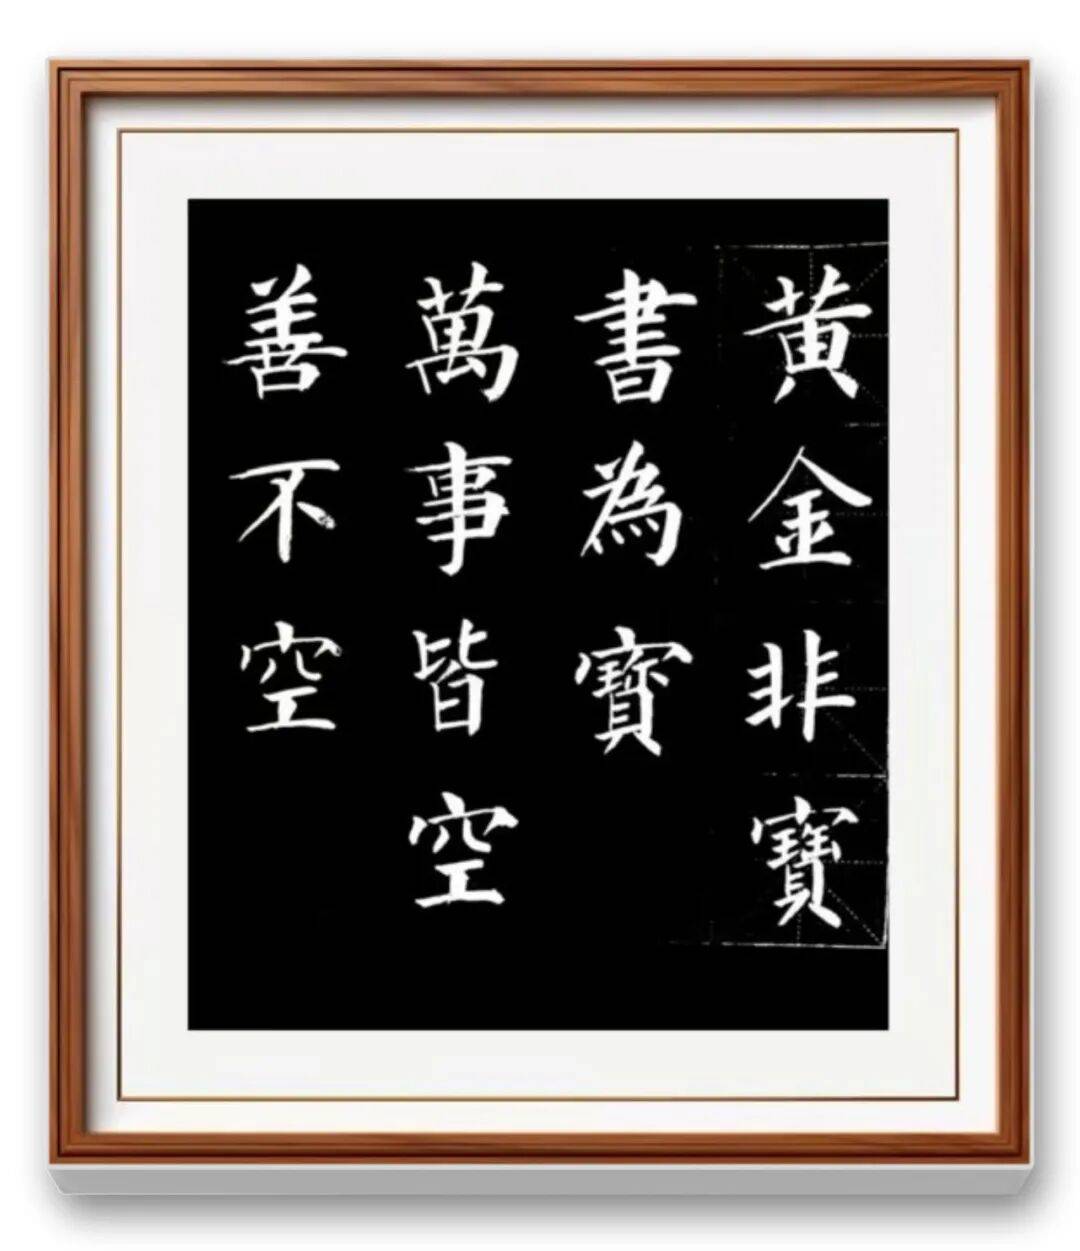 黃金非寶
書為寶
萬事皆空
善不空